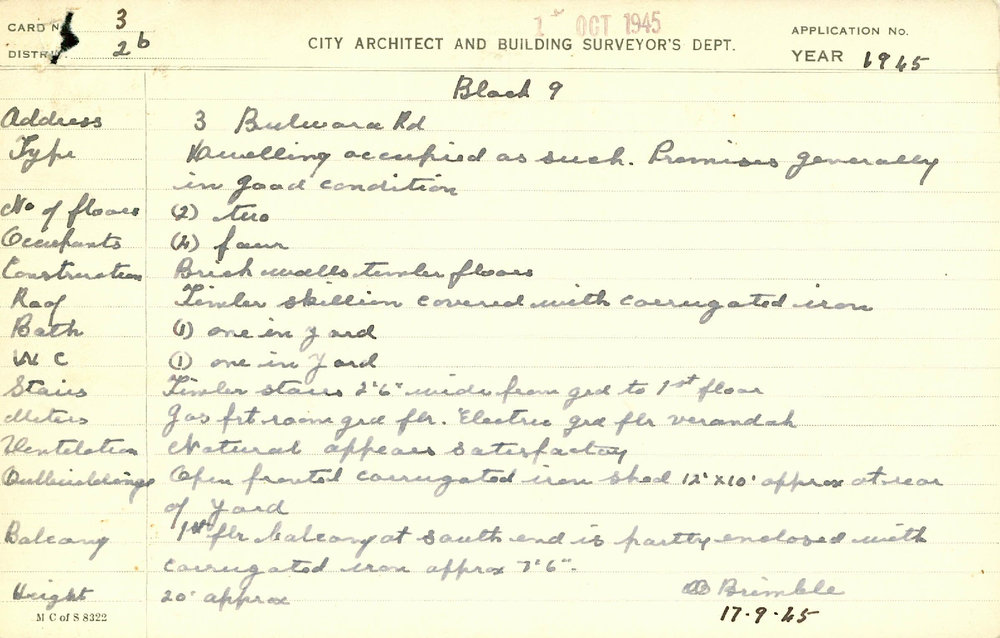 CARD No. 3
1st OCT 1945
APPLICATION No.
DISTRICT 2b
CITY ARCHITECT AND BUILDING SURVEYOR'S DEPT.
YEAR 1945
Block 9
Address 3 Bulwara Rd
Type Dwelling occupied as such. Premises generally
in good condition
No of floors (2) two
Occupants (4) four
Construction Brick walls timber floors
Roof Timber skillion covered with corrugated iron
Bath (1) one in yard
W C (1) one in yard
Stairs Timber stairs 2'6" wide from grd to 1st floor
Meters Gas frt room grd flr. Electric grd flr verandah
Ventilation Natural appears satisfactory
Outbuildings Open fronted corrugated iron shed 12' x 10' approx at rear
of yard
Balcony 1st flr balcony at south end is partly enclosed with
corrugated iron approx 7'6".
Height 20' approx
Brimble
M C of S 8322
17-9-45